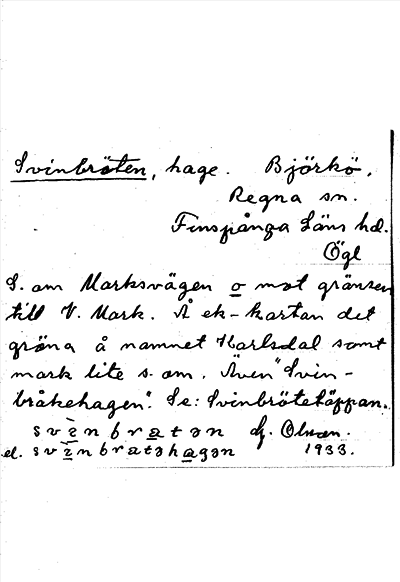 Svinbröten, hage. Björkö,
Regna sn.
Finspånga Läns hd.
Ögl
S. om Marksvägen o mot gränsen
till V. Mark. Å ek-kartan det
gröna å namnet Karlsdal samt
mark lite s. om. Även "Svin-
bråkehagen". Se: Svinbrötetäppan.
svinbratən Olsson.
el. svinbratəhagən 1933.